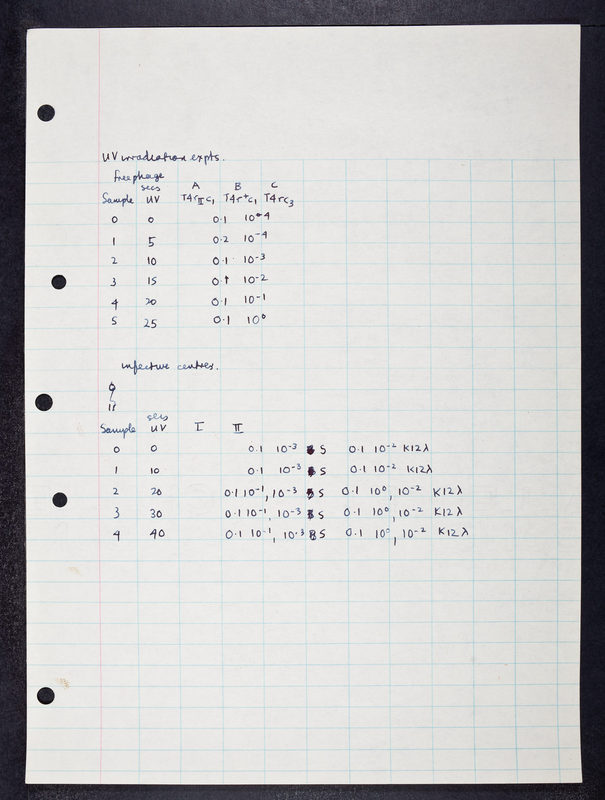 UV irradiation expts.
free phage
secs A B C
Sample UV T4rIIc1 T4r+c1 T4rc3
0 0 0.1 10-4
1 5 0.2 10-4
2 10 0.1 10-3
3 15 0.1 10-2
4 20 0.1 10-1
5 25 0.1 10⁰
infective centres.
secs
Sample UV I II
0 0 0.1 10-3 S 0.1 10-2 K12λ
1 10 0.1 10-3 S 0.1 10-2 K12λ
2 20 0.1 10-1, 10-3 S 0.1 10⁰, 10-2 K12λ
3 30 0.1 10-1, 10-3 S 0.1 10⁰, 10-2 K12λ
4 40 0.1 10-1, 10-3 S 0.1 10⁰, 10-2 K12λ